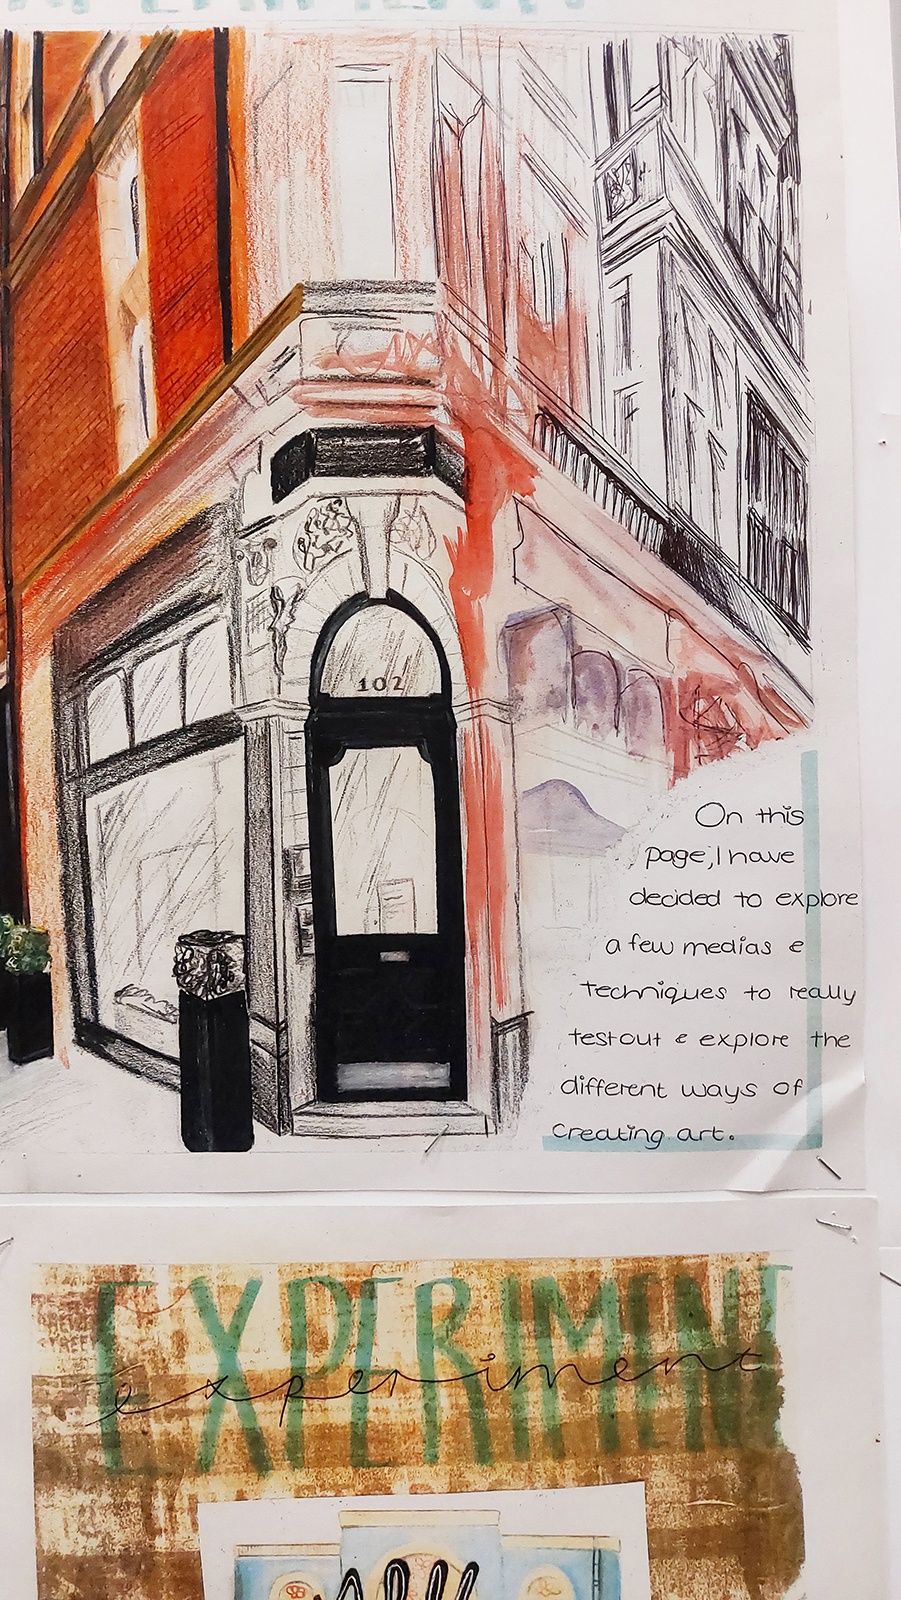 EXPERIMENT
102
On this
page, I have
decided to explore
a few medias &
techniques to really
test out & explore the
different ways of
creating art.
EXPERIMENT
experiment